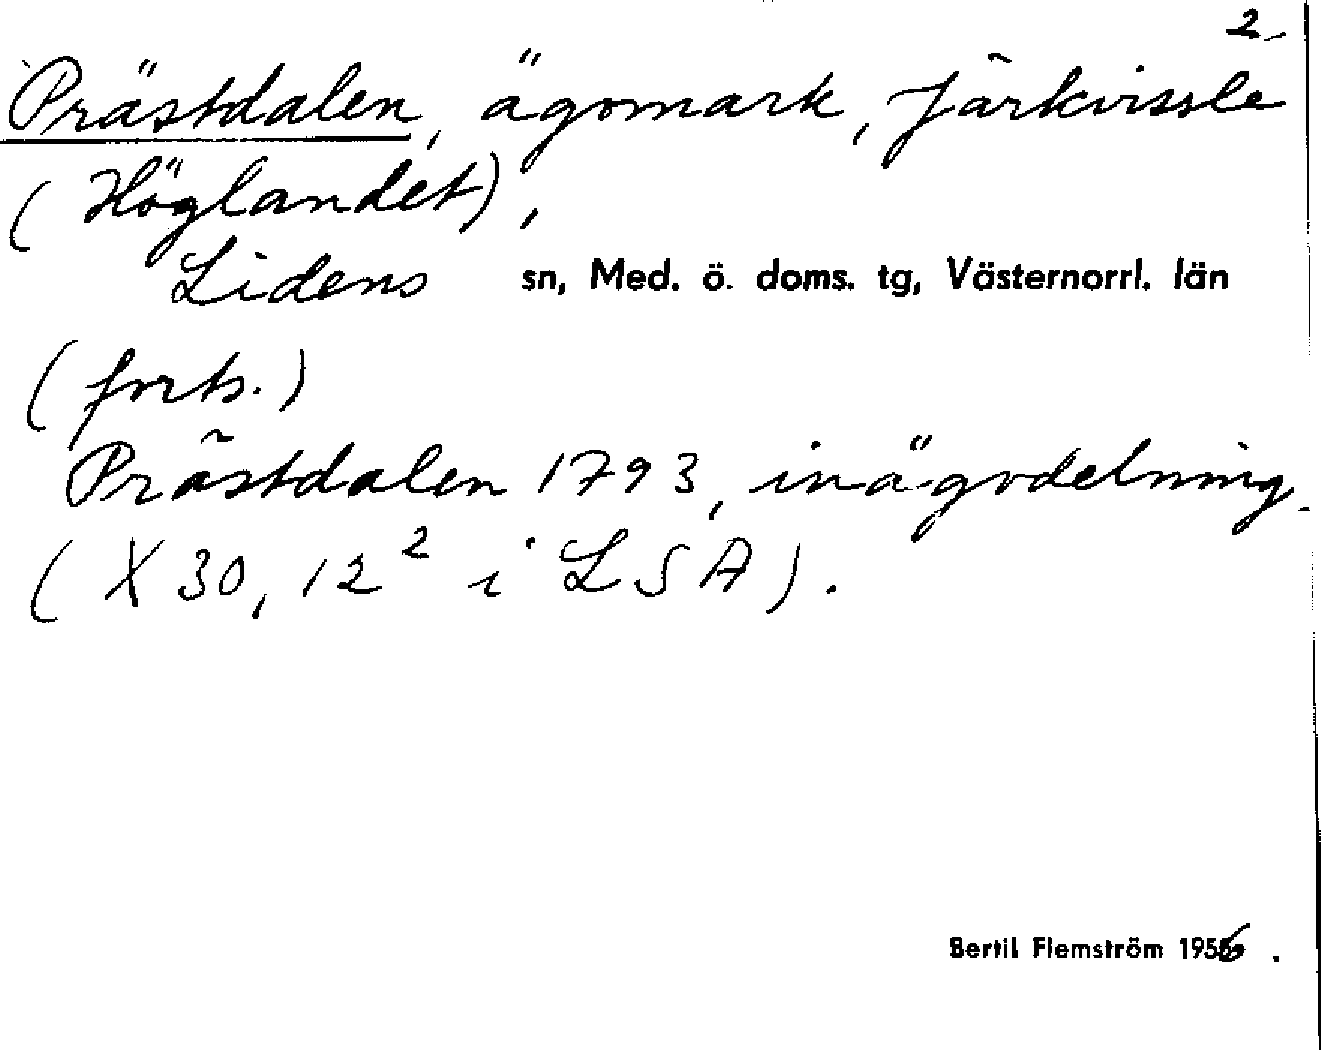 2
Prästdalen, ägomark, Järkvissle
(Höglandet),
Lidens sn, Med. ö. doms. tg, Västernorrl. län
(forts.)
Prästdalen 1793, inägodelning.
(X 30, 12² i LSA).
Bertil Flemström 1956.